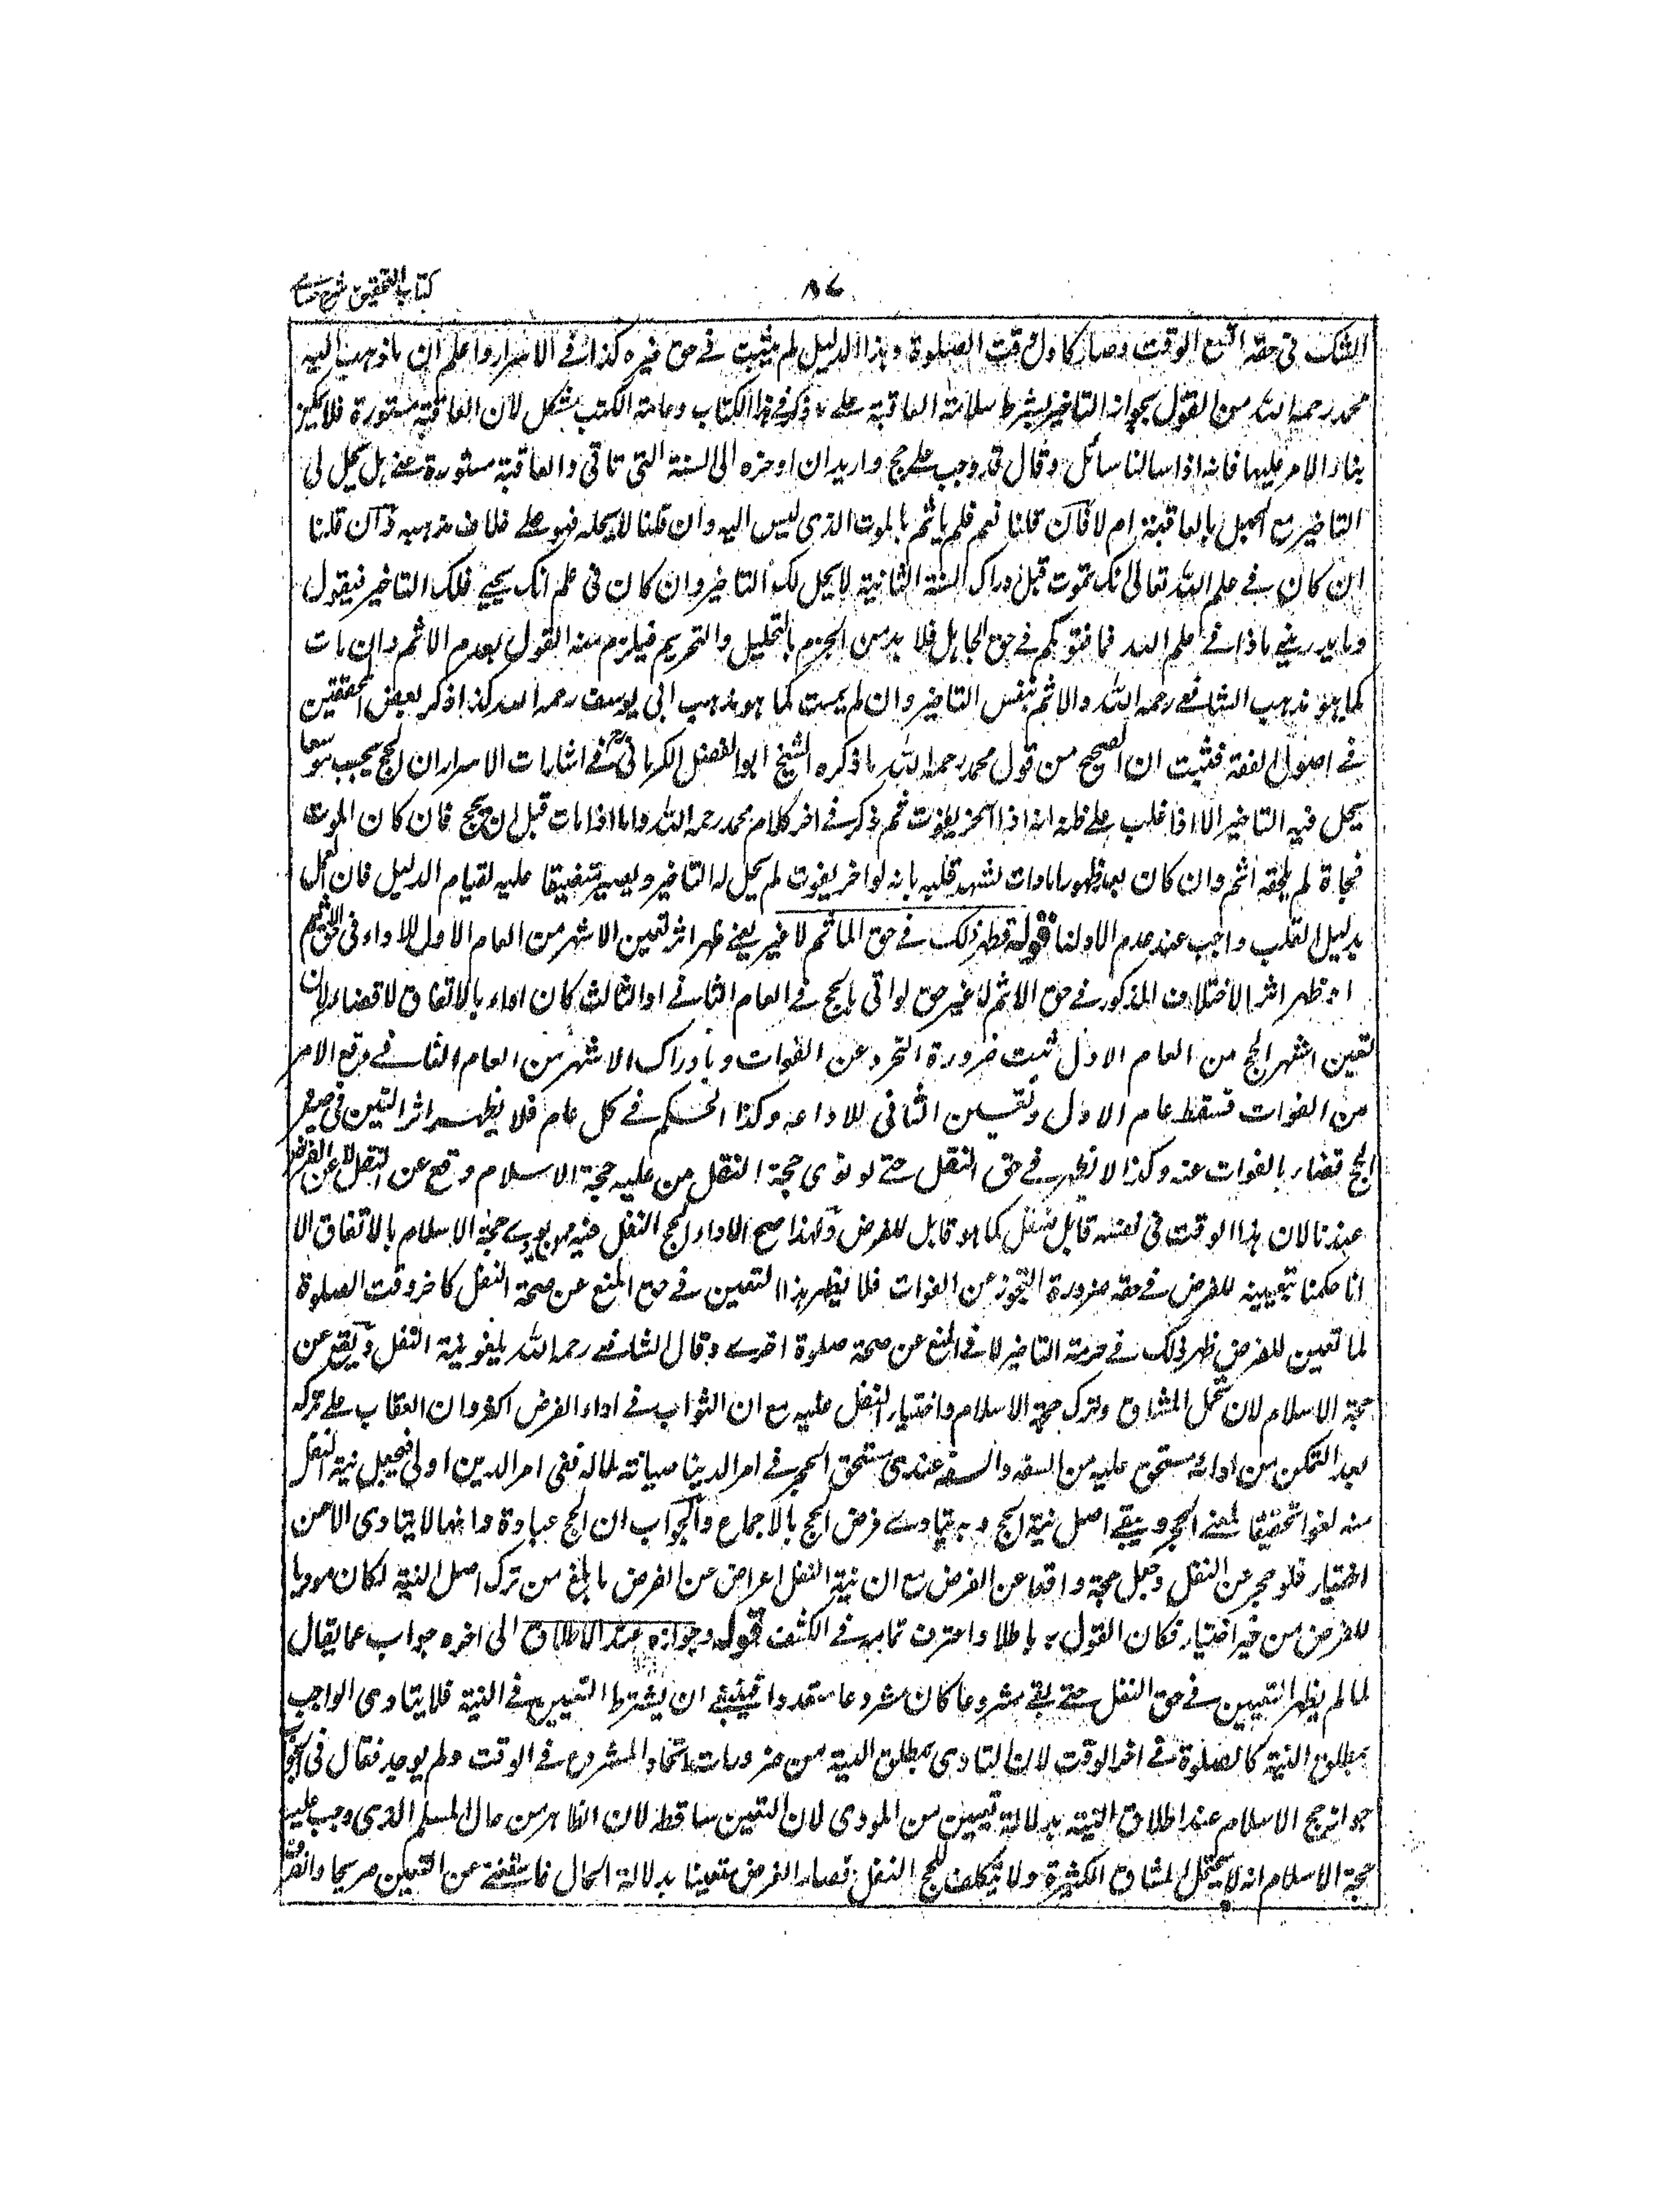 كتاب التحقيق شرح حسامي
٨٧
الشك في حقه اتسع الوقت وصار كاول وقت الصلوة وهذا الدليل لم يثبت في حق غيره كذا في الاسرار واعلم ان ما ذهب اليه
محمد رحمه الله من القول بجواز التاخير بشرط سلامة العاقبة على ما ذكر في هذا الكتاب وعامة الكتب مشكل لان العاقبة مستورة فلا يمكن
بناء الامر عليها فانه اذا سالنا سائل وقال قد وجب على حج واريد ان اوخره الى السنة التي تاتي والعاقبة مستورة عنى هل يحل لى
التاخير مع الجهل بالعاقبة ام لا فان قلنا نعم فلم ياثم بالموت الذى ليس اليه وان قلنا لا يحله فهو على خلاف مذهبه فان قلنا
ان كان في علم الله تعالى انك تموت قبل ادراك السنة الثانية لا يحل لك التاخير وان كان في علمه انك تحيي فلك التاخير فيقول
وما يدريني ماذا في علم الله فما فتوكم في حق الجاهل فلا بد من الجزم بالتحليل والتحريم فيلزم منه القول بعدم الاثم وان مات
كما هو مذهب الشافعي رحمه الله والاثم بنفس التاخير وان لم يمت كما هو مذهب ابي يوسف رحمه الله كذا ذكر بعض المحققين
في اصول الفقه فثبت ان الصحيح من قول محمد رحمه الله ما ذكره الشيخ ابو الفضل الكرماني رح في اشارات الاسرار ان الحج يجب موسعا
يحل فيه التاخير الا اذا غلب على ظنه انه اذا اخر يفوت ثم ذكر في اخر كلام محمد رحمه الله واما اذا مات قبل ان يحج فان كان الموت
فجاة لم يلحقه اثم وان كان بعد ظهور امارات يشهد قلبه بانه لو اخر يفوت لم يحل له التاخير ويصير متضيقا عليه لقيام الدليل فان العمل
بدليل القلب واجب عند عدم الادلة قوله فظهر ذلك في حق الماثم لا غير يعني ظهر اثر تعين الاشهر من العام الاول للاداء في حق الاثم
او ظهر اثر الاختلاف المذكور في حق الاثم لا غير حتى لو اتى بالحج في العام الثاني او الثالث كان اداء بالاتفاق لا قضاء لان
تعين اشهر الحج من العام الاول ثبت ضرورة التحرز عن الفوات وبادراك الاشهر من العام الثاني وقع الامن
من الفوات فسقط عام الاول وتعين الثاني للاداء وكذا الحكم في كل عام فلا يظهر اثر التعين في صيرورة
الحج قضاء بالفوات عنه وكذا لا يظهر في حق النفل حتى لو نوى حجة النفل من عليه حجة الاسلام وقع عن النفل لا عن الفرض
عندنا لان هذا الوقت في نفسه قابل للنفل كما هو قابل للفرض ولهذا صح الاداء لحج النفل فيه ممن يودى حجة الاسلام بالاتفاق الا
انا حكمنا بتعيينه للفرض في حقه ضرورة التحرز عن الفوات فلا يظهر هذا التعين في حق المنع عن صحة النفل كاخر وقت الصلوة
لما تعين للفرض ظهر ذلك في حرمة التاخير لا في المنع عن صحة صلوة اخرى وقال الشافعي رحمه الله يلغو نية النفل ويقع عن
حجة الاسلام لان تحمل المشاق وترك حجة الاسلام واختيار النفل عليه مع ان الثواب في اداء الفرض اكثر وان العقاب على تركه
بعد التمكن من ادائه مستحق عليه من السفه والسفه عندى مستحق الحجر في امر الدنيا صيانة لماله ففى امر الدين اولى فيجعل نية النفل
منه لغوا تحقيقا لمعنى الحجر ويبقى اصل نية الحج وبه يتادى فرض الحج بالاجماع والجواب ان الحج عبادة وانها لا يتادى الا عن
اختيار فلو حجر عن النفل وجعل حجة واقعا عن الفرض مع ان نية النفل اعراض عن الفرض ما بلغ من ترك اصل النية لكان موديا
للفرض من غير اختيار فكان القول به باطلا واعترف تمامه في الكشف قوله وجوازه عند الاطلاق الى اخره جواب عما يقال
لما لم يظهر التعيين في حق النفل حتى بقى مشروعا كان مشروعا متعددا فينبغي ان يشترط التعيين في النية فلا يتادى الواجب
بمطلق النية كالصلوة في اخر الوقت لان التادى بمطلق النية من ضرورات اتحاد المشروع في الوقت ولم يوجد فقال في الجواب
جواز حج الاسلام عند اطلاق النية بدلالة تعيين من المودى لان التعين ساقط لان الظاهر من حال المسلم الذى وجب عليه
حجة الاسلام انه لا يتحمل المشاق الكثيرة ولا يتكلف لحج النفل فصار الفرض متعينا بدلالة الحال فاستغنى عن التعيين صريحا وانصرف